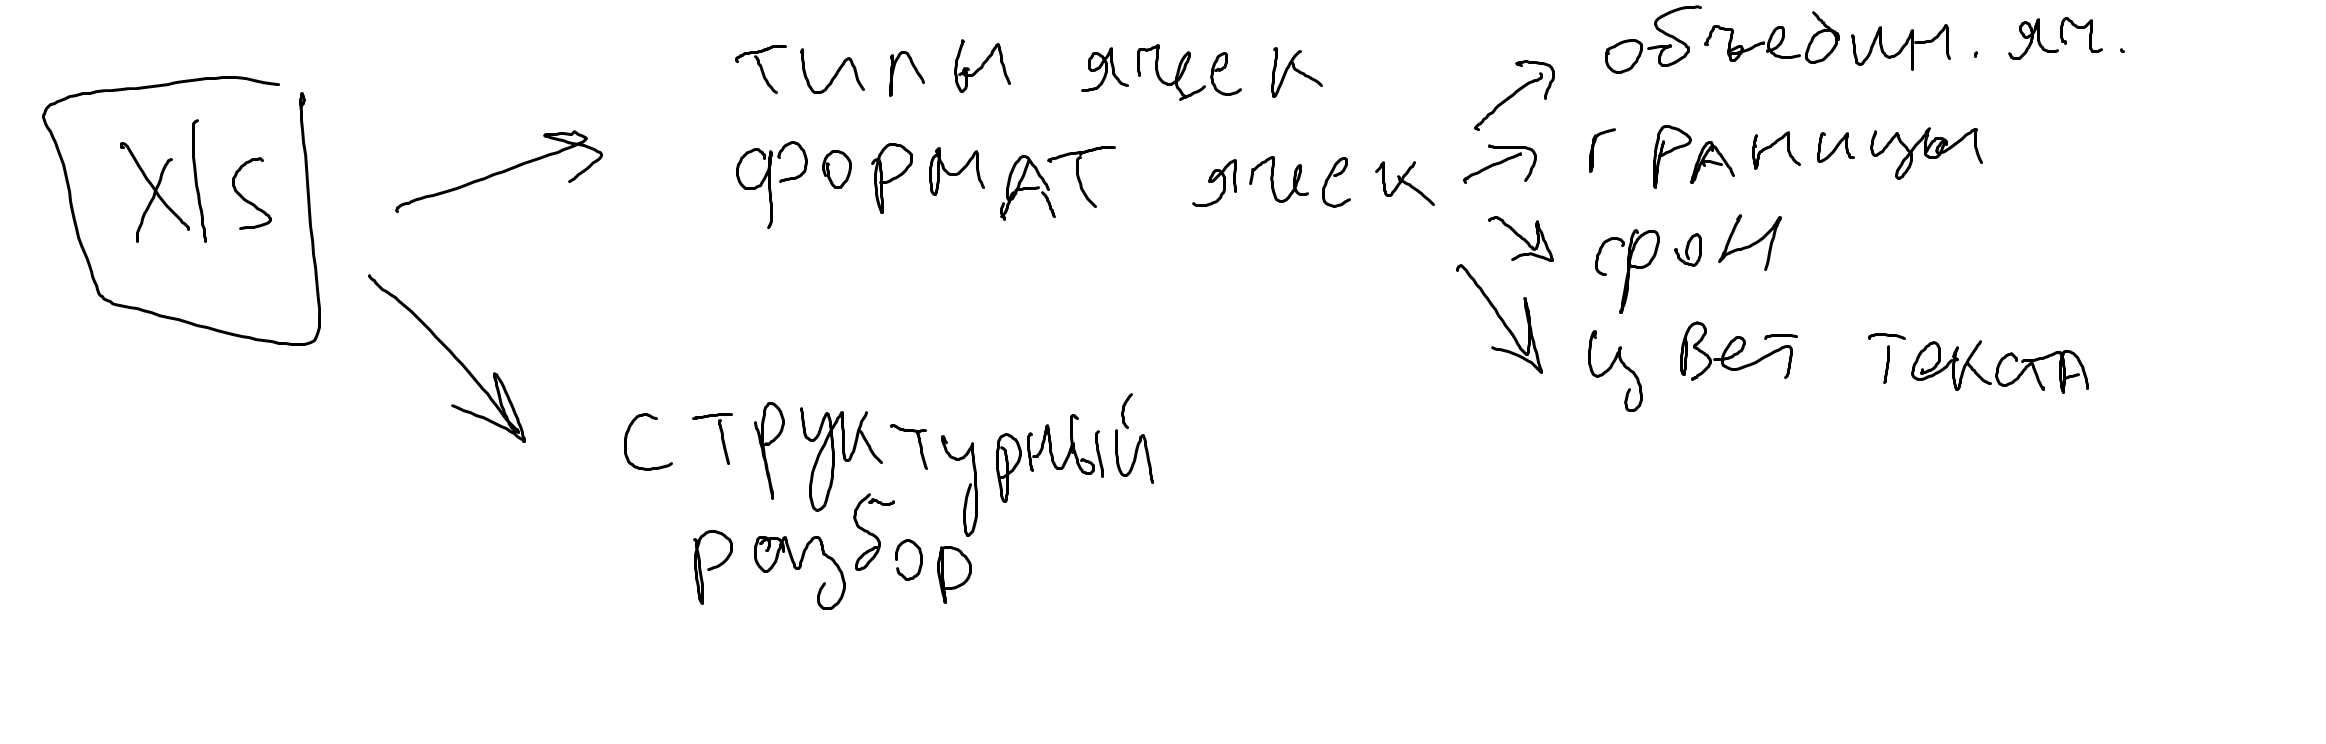 xls
типы ячеек
формат ячеек
объедин. яч.
границы
фон
цвет текста
структурный
разбор